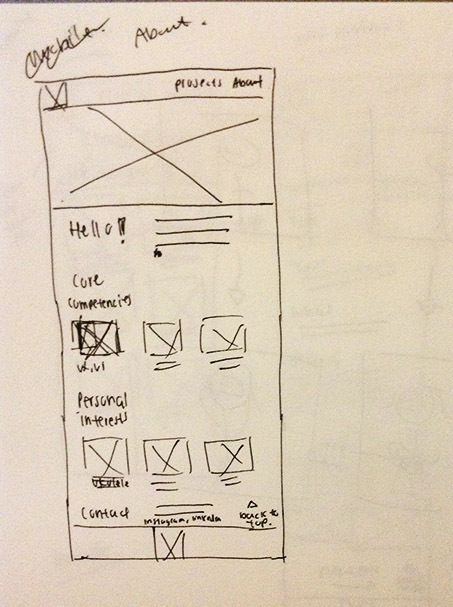 Mobile. About.
projects About
Hello!!
Core
Competencies
Personal
interests
ukulele
Contact
instagram, linkedin
back to
top.